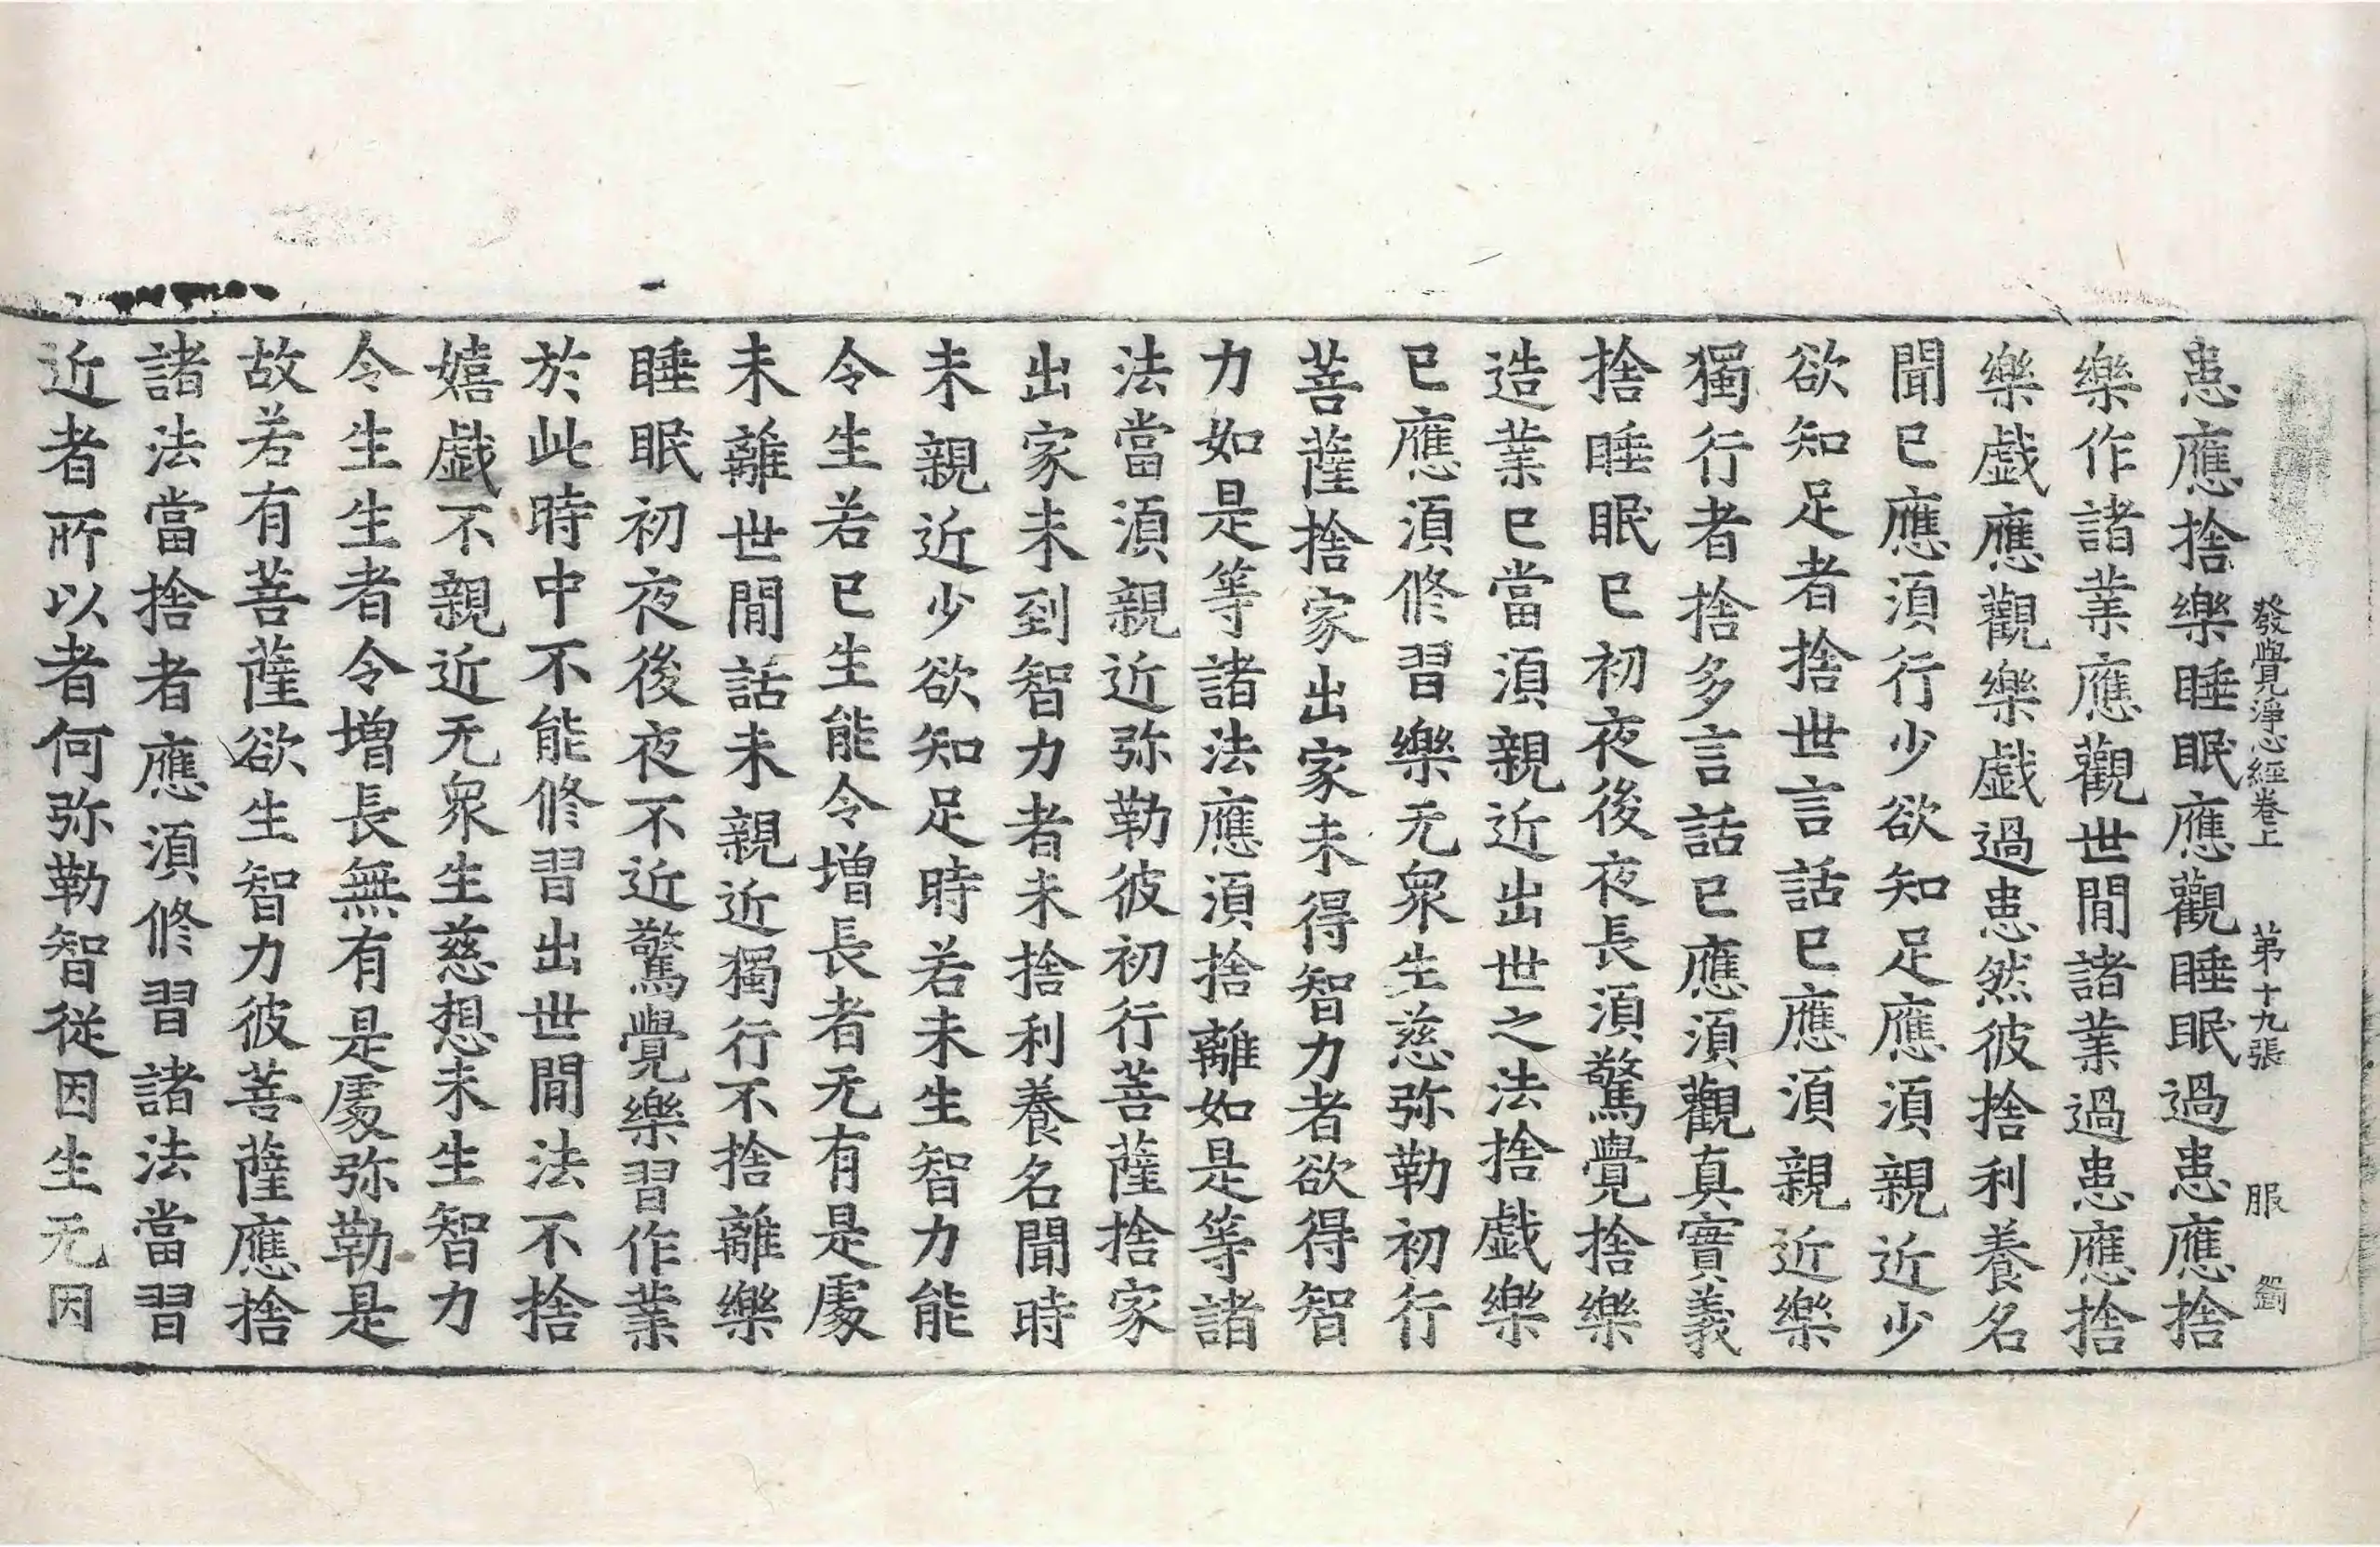 發覺淨心經卷上　第十九張　服
患應捨樂睡眠應觀睡眠過患應捨
樂作諸業應觀世閒諸業過患應捨
樂戯應觀樂戯過患然彼捨利養名
聞已應湏行少欲知足應湏親近少
欲知足者捨世言話已應湏親近樂
獨行者捨多言話已應湏觀真實義
捨睡眠已初夜後夜長湏驚覺捨樂
造業已當湏親近出世之法捨戯樂
已應湏修習樂无衆生慈弥勒初行
菩薩捨家出家未得智力者欲得智
力如是等諸法應湏捨離如是等諸
法當湏親近弥勒彼初行菩薩捨家
出家未到智力者未捨利養名聞時
未親近少欲知足時若未生智力能
令生若已生能令增長者无有是處
未離世閒話未親近獨行不捨離樂
睡眠初夜後夜不近驚覺樂習作業
於此時中不能修習出世閒法不捨
嬉戯不親近无衆生慈想未生智力
令生生者令增長無有是處弥勒是
故若有菩薩欲生智力彼菩薩應捨
諸法當捨者應湏修習諸法當習
近者所以者何弥勒智從因生无因